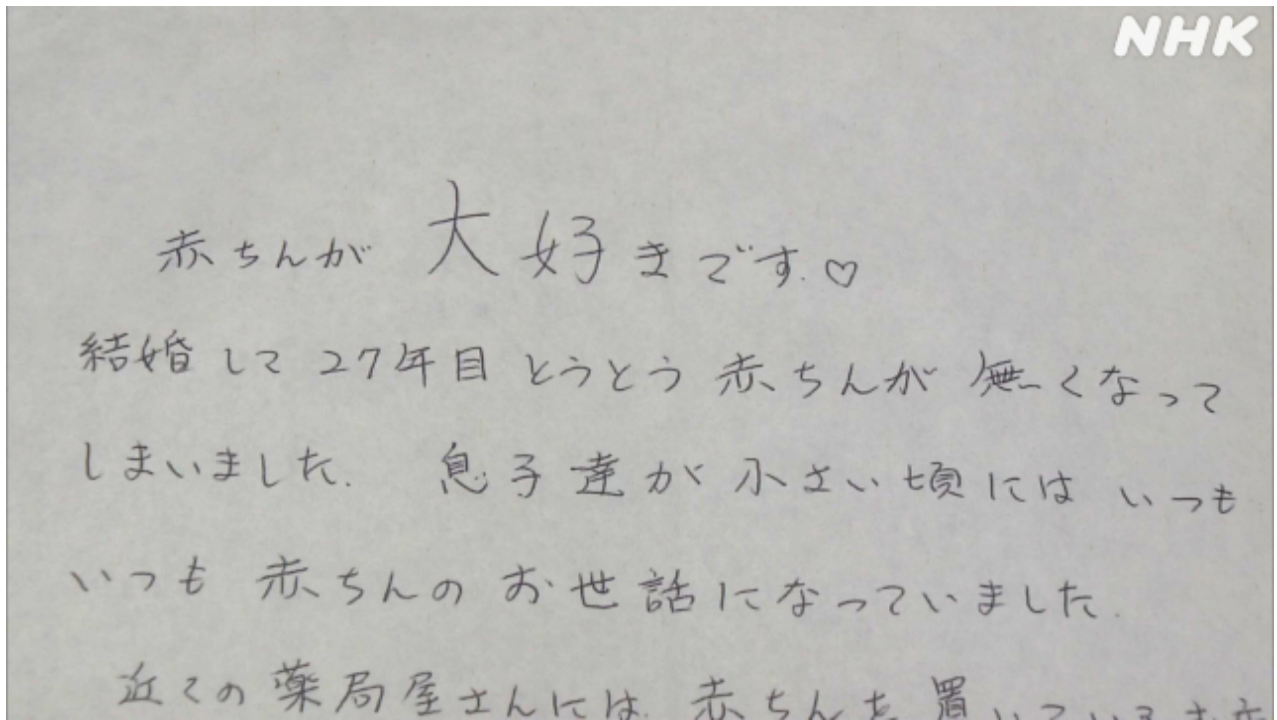 NHK
赤ちんが 大好きです.♡
結婚して 27年目 とうとう 赤ちんが 無くなって
しまいました. 息子達が 小さい頃には いつも
いつも 赤ちんの お世話になっていました.
近くの 薬局屋さんには 赤ちんを 置いている